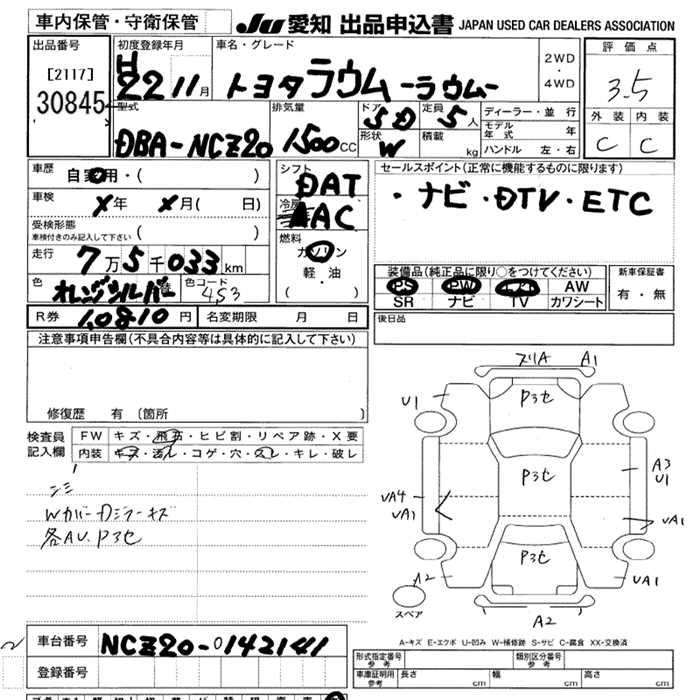 車内保管・守衛保管
JU 愛知 出品申込書 JAPAN USED CAR DEALERS ASSOCIATION
出品番号
[2117]
30845
初度登録年月
H
22 11月
車名・グレード
トヨタ ラウム -ラウム-
2WD
・
4WD
評価点
3.5
外装 内装
C C
型式
DBA-NCZ20
排気量
1500cc
ドア
5D
形状
W
定員
5人
積載
kg
ディーラー・並行
モデル年式 年
ハンドル 左・右
車歴
自家用・( )
車検
年 月( 日)
受検形態
車検付きのみ記入して下さい ( )
走行
7万5千033km
色
オレンジシルバー 替
色コード
4S3
シフト
DAT
冷房
AAC
燃料
ガソリン
軽・油
( )
セールスポイント(正常に機能するものに限ります)
・ナビ・DTV・ETC
装備品(純正品に限り○をつけてください)
PS PW エアB AW
SR ナビ TV カワシート
新車保証書
有・無
R券 10810円
名変期限 月 日
後日品
注意事項申告欄(不具合内容等は具体的に記入して下さい)
修復歴 有 (箇所 )
検査員
記入欄
FW キズ・飛石・ヒビ割・リペア跡・X要
内装 キズ・汚レ・コゲ・穴・スレ・キレ・破レ
シミ
Wカバー
各AU、P3セ
スリA A1
U1 P3セ
P3セ
A3
U1
UA4
UA1
UA1
A2 P3セ UA1
スペア A2
A-キズ E-エクボ U-凹み W-補修跡 S-サビ C-腐食 XX-交換済
車台番号 NCZ20-0142141
登録番号
形式指定番号
参考
類別区分番号
参考
車庫証明用
参考
長さ cm 幅 cm 高さ cm